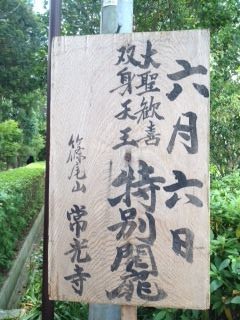 六月六日
大聖歓喜
双身天王
特別開龕
篠尾山
常光寺